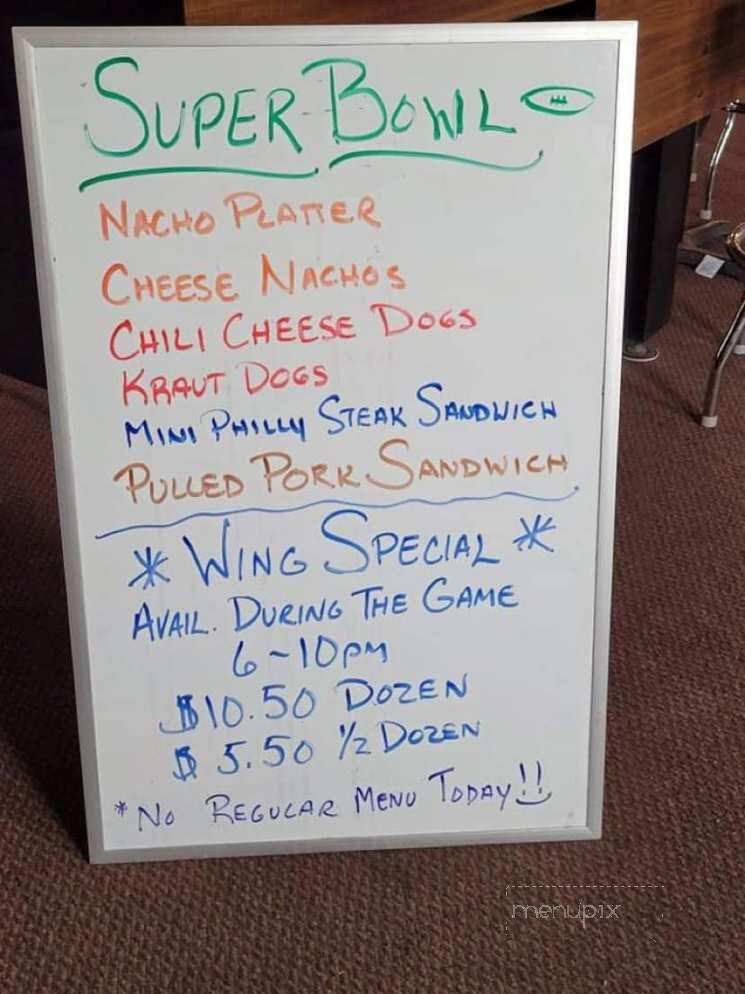 SUPER BOWL
NACHO PLATTER
CHEESE NACHOS
CHILI CHEESE DOGS
KRAUT DOGS
MINI PHILLY STEAK SANDWICH
PULLED PORK SANDWICH
* WING SPECIAL *
AVAIL. DURING THE GAME
6-10PM
$10.50 DOZEN
$5.50 1/2 DOZEN
*NO REGULAR MENU TODAY!!
menupix